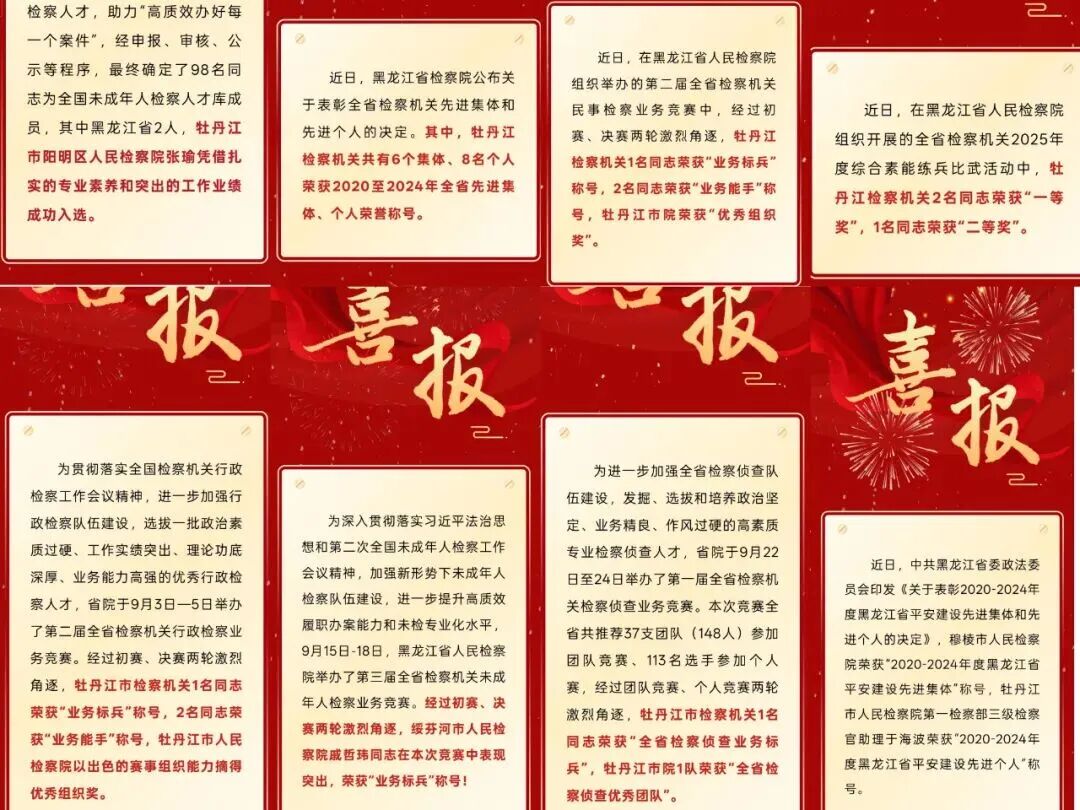 检察人才，助力“高质效办好每
一个案件”，经申报、审核、公
示等程序，最终确定了98名同
志为全国未成年人检察人才库成
员，其中黑龙江省2人，牡丹江
市阳明区人民检察院张瑜凭借扎
实的专业素养和突出的工作业绩
成功入选。
近日，黑龙江省检察院公布关
于表彰全省检察机关先进集体和
先进个人的决定。其中，牡丹江
检察机关共有6个集体、8名个人
荣获2020至2024年全省先进集
体、个人荣誉称号。
近日，在黑龙江省人民检察院
组织举办的第二届全省检察机关
民事检察业务竞赛中，经过初
赛、决赛两轮激烈角逐，牡丹江
检察机关1名同志荣获“业务标兵”
称号，2名同志荣获“业务能手”称
号，牡丹江市院荣获“优秀组织
奖”。
近日，在黑龙江省人民检察院
组织开展的全省检察机关2025年
度综合素能练兵比武活动中，牡
丹江检察机关2名同志荣获“一等
奖”，1名同志荣获“二等奖”。
喜报
为贯彻落实全国检察机关行政
检察工作会议精神，进一步加强行
政检察队伍建设，选拔一批政治素
质过硬、工作实绩突出、理论功底
深厚、业务能力高强的优秀行政检
察人才，省院于9月3日—5日举办
了第二届全省检察机关行政检察业
务竞赛。经过初赛、决赛两轮激烈
角逐，牡丹江市检察机关1名同志
荣获“业务标兵”称号，2名同志荣
获“业务能手”称号，牡丹江市人民
检察院以出色的赛事组织能力摘得
优秀组织奖。
喜报
为深入贯彻落实习近平法治思
想和第二次全国未成年人检察工作
会议精神，加强新形势下未成年人
检察队伍建设，进一步提升高质效
履职办案能力和未检专业化水平，
9月15日-18日，黑龙江省人民检察
院举办了第三届全省检察机关未成
年人检察业务竞赛。经过初赛、决
赛两轮激烈角逐，绥芬河市人民检
察院戚哲玮同志在本次竞赛中表现
突出，荣获“业务标兵”称号！
喜报
为进一步加强全省检察侦查队
伍建设，发掘、选拔和培养政治坚
定、业务精良、作风过硬的高素质
专业检察侦查人才，省院于9月22
日至24日举办了第一届全省检察机
关检察侦查业务竞赛。本次竞赛全
省共推荐37支团队（148人）参加
团队竞赛、113名选手参加个人竞
赛，经过团队竞赛、个人竞赛两轮
激烈角逐，牡丹江市检察机关1名
同志荣获“全省检察侦查业务标
兵”，牡丹江市院1队荣获“全省检
察侦查优秀团队”。
喜报
近日，中共黑龙江省委政法委
员会印发《关于表彰2020-2024年
度黑龙江省平安建设先进集体和先
进个人的决定》，穆棱市人民检察
院荣获“2020-2024年度黑龙江省
平安建设先进集体”称号，牡丹江
市人民检察院第一检察部三级检察
官助理于海波荣获“2020-2024年
度黑龙江省平安建设先进个人”称
号。